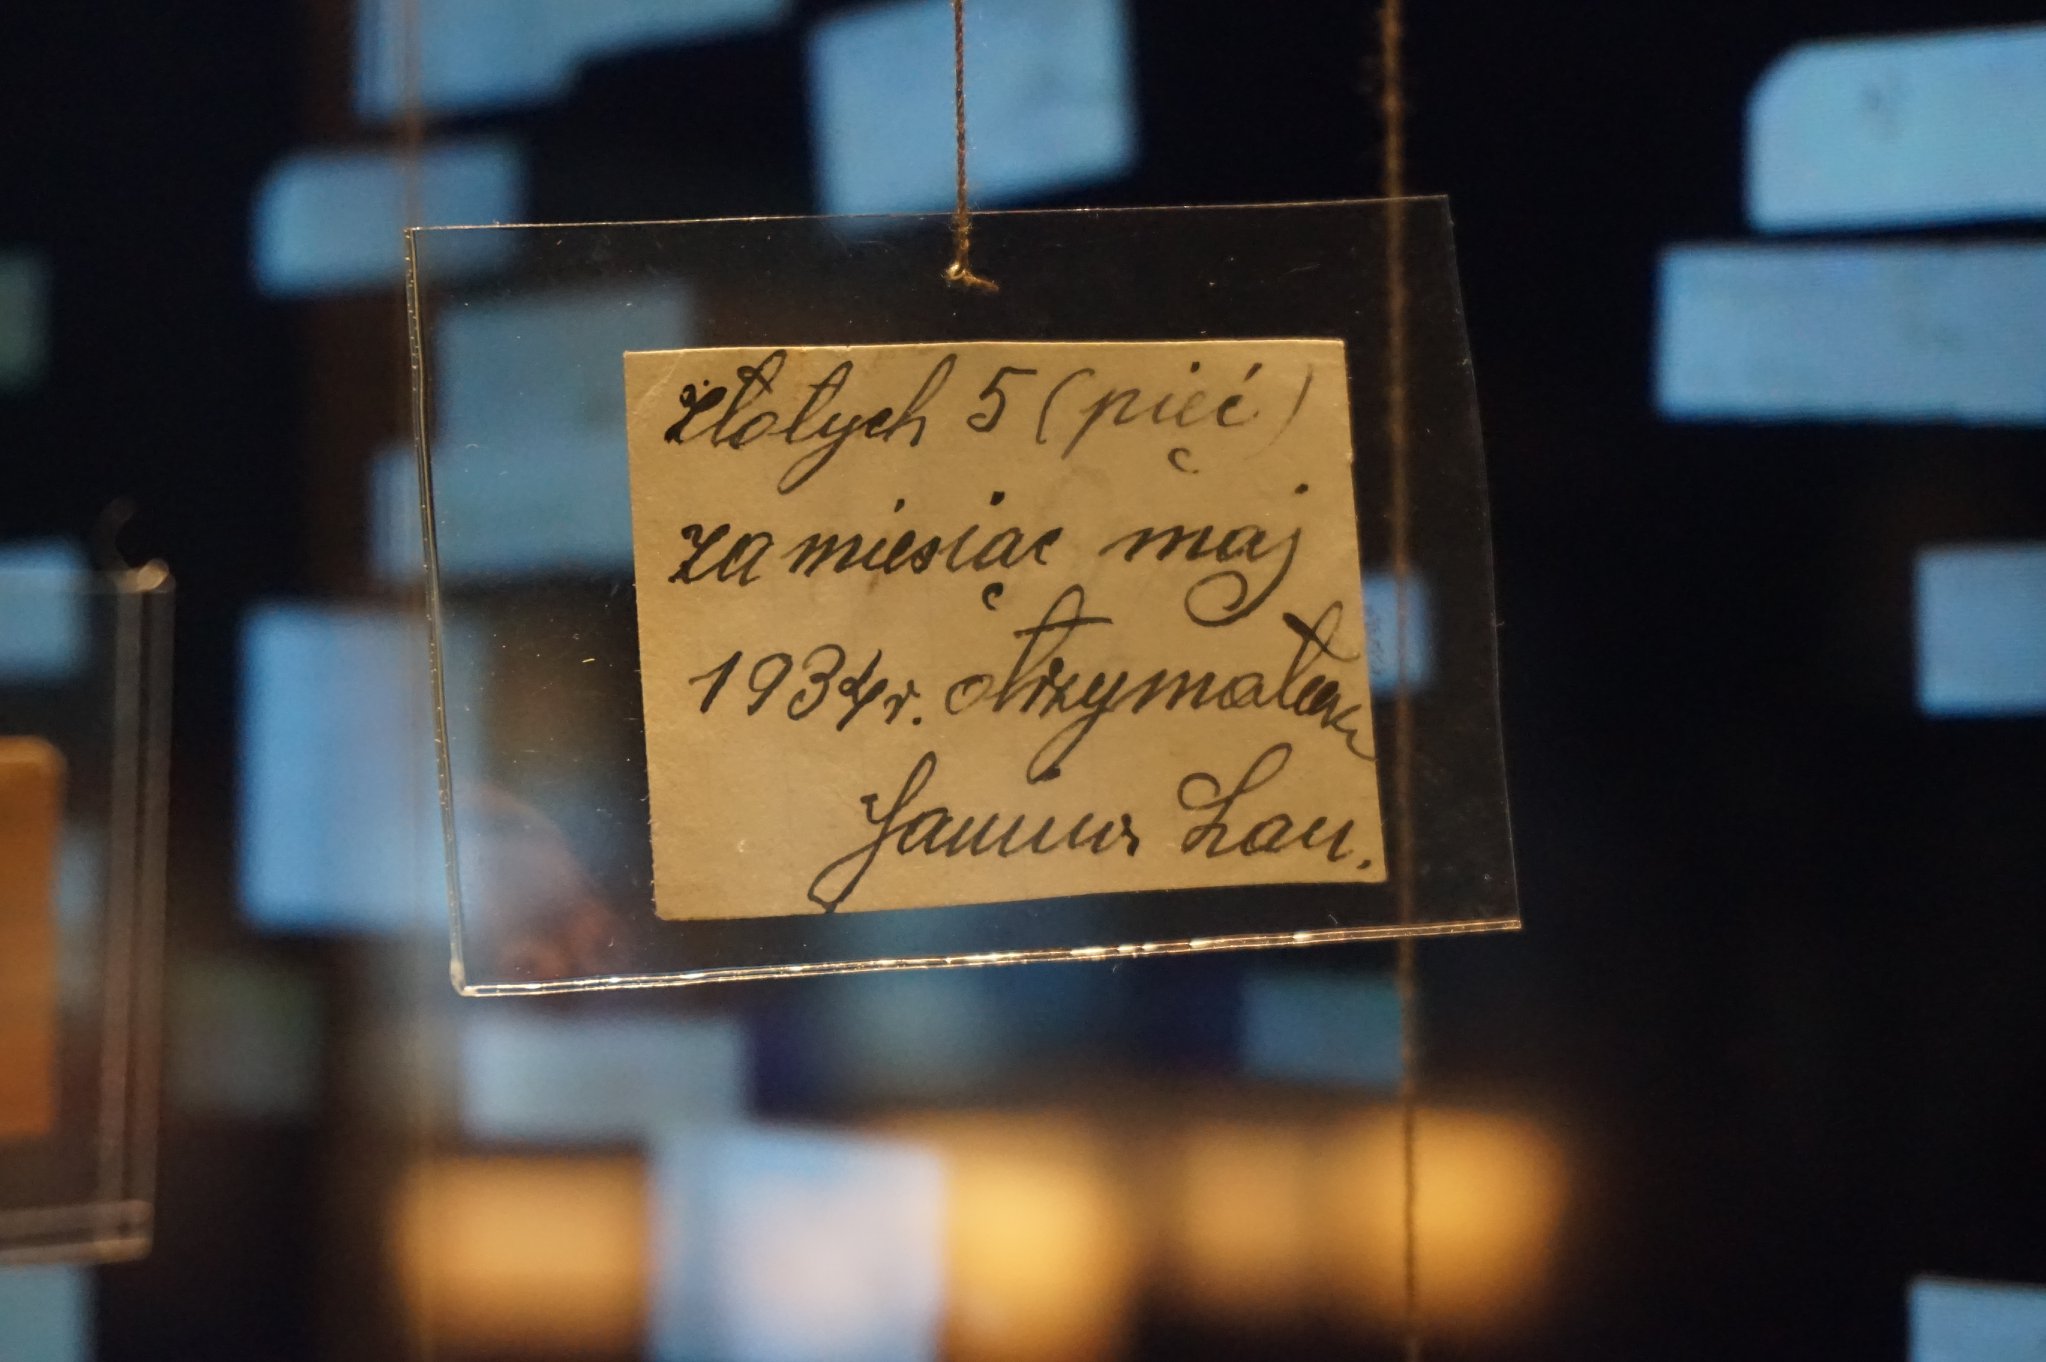 Złotych 5 (pięć)
za miesiąc maj
1934 r. otrzymałem
Lau.